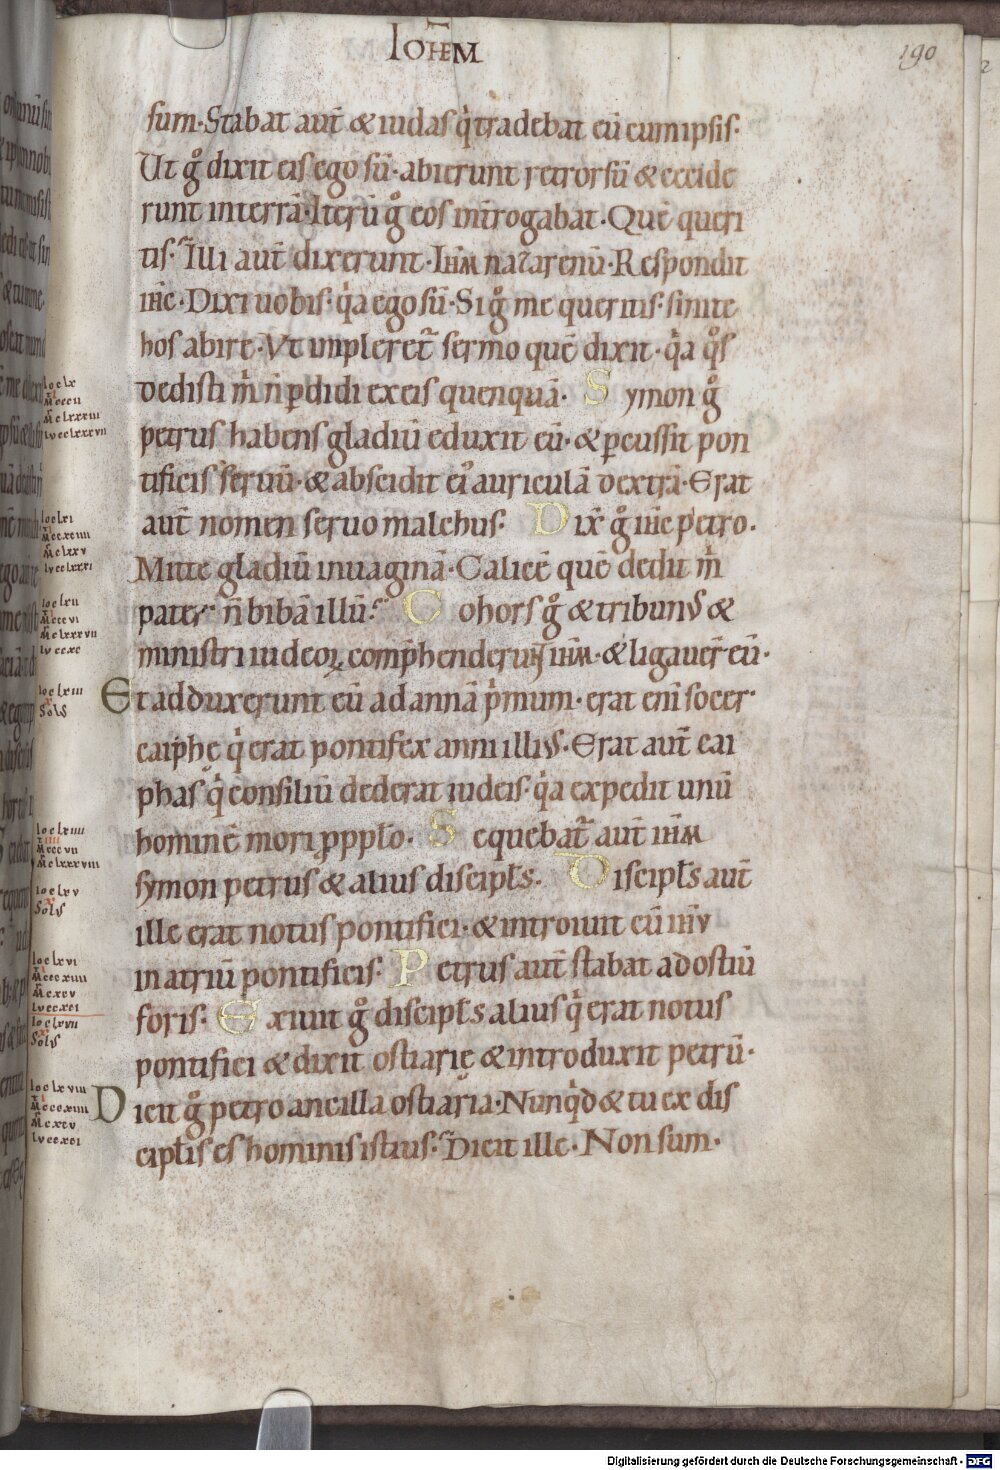 IOHĒM
190
sum· Stabat aut̄ & iudas q̇tradebat eū cum ipsis·
Ut gͦ dixit eis ego sū· abierunt retrorsū & cecide
runt interrā· Iterū gͦ eos int̄rogabat· Quē queri
tis· Illi aut̄ dixerunt· Ihm̄ nazarenū· Respondit
ihc̄· Dixi uobis· q̇a ego sū· Si gͦ me queritis· sinite
hos abire· Vt impleret᷒ sermo quē dixit· q̇a qͦs
dedisti ṁ n̄ ꝑdidi ex eis quenquā· Symon gͦ
petrus habens gladiū eduxit eū· & ꝑcussit pon
tificis seruū· & abscidit ei᷒ auriculā dextrā· Erat
aut̄ nomen seruo malchus· Dix̄ gͦ ihc̄ petro·
Mitte gladiū inuaginā· Calicē quē dedit ṁ
pater n̄ bibā illū· Cohors gͦ & tribun᷒ &
ministri iudeoꝝ comp̄henderunt ihm̄· & ligauer̄ eū·
Et adduxerunt eū ad annā ṗmum· erat eni᷒ socer
caiphę q̇ erat pontifex anni illi᷒· Erat aut̄ cai
phas q̇ consiliū dederat iudeis· q̇a expedit unū
hominē mori ꝓ pplo· Sequebat᷒ aut̄ ihm̄
symon petrus & alius discipłs· Discipłs aut̄
ille erat notus pontifici· & introiuit cū ihv̄
in atriū pontificis· Petrus aut̄ stabat ad ostiū
foris· Exiuit gͦ discipłs alius q̇ erat notus
pontifici & dixit ostiarię & introduxit petrū·
Dicit gͦ petro ancilla ostiaria· Nunq̇d & tu ex dis
cipłis es hominis istius· Dicit ille· Non sum·
Digitalisierung gefördert durch die Deutsche Forschungsgemeinschaft - DFG